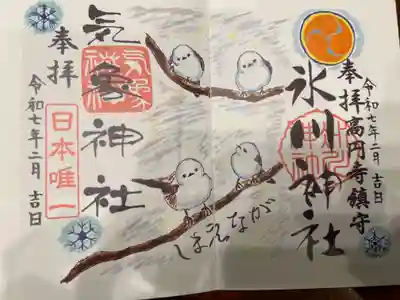 奉拝
高円寺鎮守
氷川神社
令和七年二月吉日
しまえなが
奉拝
気象神社
日本唯一
令和七年二月吉日